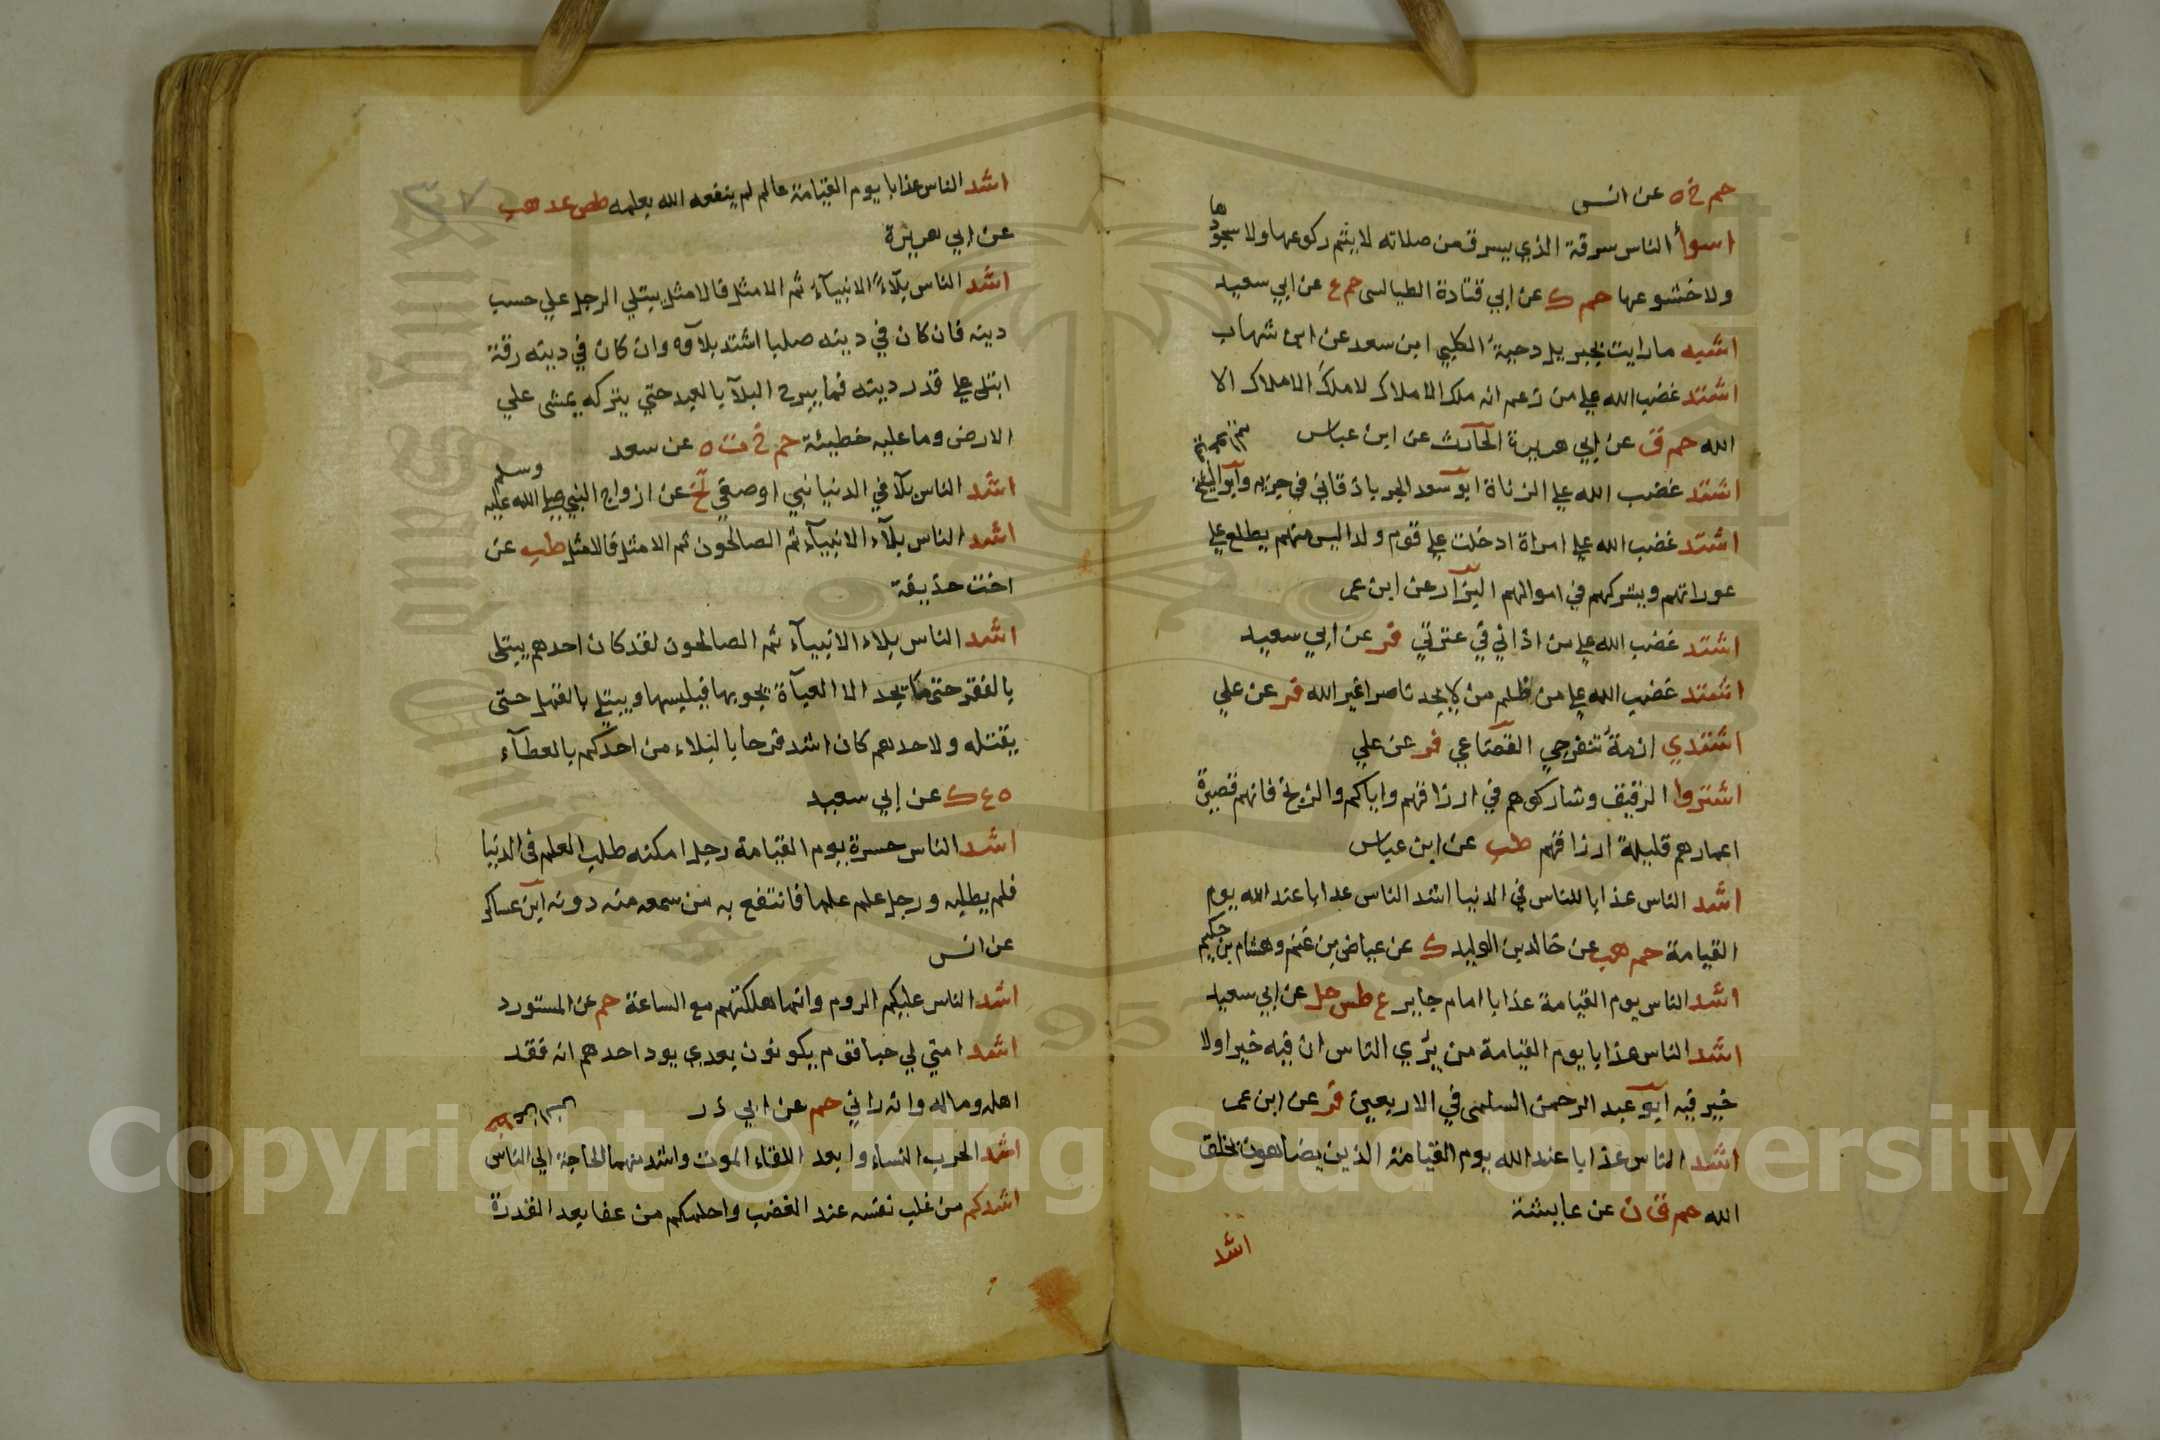 حم خ ه عن انس
اسوأ الناس سرقة الذي يسرق من صلاته لا يتم ركوعها ولا سجودها
ولا خشوعها حم ك عن ابي قتادة الطيالسي حم ع عن ابي سعيد
اشبه ما رايت بجبريل دحية الكلبي ابن سعد عن ابن شهاب
اشتد غضب الله علي من زعم انه ملك الاملاك لا ملك الاملاك الا
الله حم ق عن ابي هريرة الحارث عن ابن عباس
اشتد غضب الله علي الزناة ابو سعد الجرباذقاني في جزئه وابو الشيخ
اشتد غضب الله علي امراة ادخلت علي قوم ولدا ليس منهم يطلع علي
عوراتهم ويشركهم في اموالهم البزار عن ابن عمر
اشتد غضب الله علي من اذاني في عترتي فر عن ابي سعيد
اشتد غضب الله علي من ظلم من لا يجد ناصرا غير الله فر عن علي
اشتدي ازمة تنفرجي القضاعي فر عن علي
اشتروا الرقيق وشاركوهم في ارزاقهم واياكم والزنج فانهم قصيرة
اعمارهم قليلة ارزاقهم طب عن ابن عباس
اشد الناس عذابا للناس في الدنيا اشد الناس عذابا عند الله يوم
القيامة حم هب عن خالد بن الوليد ك عن عياض بن غنم وهشام بن حكيم
اشد الناس يوم القيامة عذابا امام جاير ع طس حل عن ابي سعيد
اشد الناس عذابا يوم القيامة من يري الناس ان فيه خيرا ولا
خير فيه ابو عبد الرحمن السلمي في الاربعين فر عن ابن عمر
اشد الناس عذابا عند الله يوم القيامة الذين يضاهون بخلق
الله حم ق ن عن عايشة
اشد
٣٧
اشد الناس عذابا يوم القيامة عالم لم ينفعه الله بعلمه طص عد هب
عن ابي هريرة
اشد الناس بلآء الانبيآء ثم الامثل فالامثل يبتلي الرجل علي حسب
دينه فان كان في دينه صلبا اشتد بلآؤه وان كان في دينه رقة
ابتلي علي قدر دينه فما يبرح البلآ بالعبد حتي يتركه يمشي علي
الارض وما عليه خطيئة حم خ ت ه عن سعد
اشد الناس بلآ في الدنيا نبي او صفي تخ عن ازواج النبي صلي الله عليه وسلم
اشد الناس بلآء الانبيآء ثم الصالحون ثم الامثل فالامثل طب عن
اخت حذيفة
اشد الناس بلاء الانبيآء ثم الصالحون لقد كان احدهم يبتلى
بالفقر حتى ما يجد الا العبآة يجوبها فيلبسها ويبتلي بالقمل حتى
يقتله ولاحدهم كان اشد فرحا بالبلاء من احدكم بالعطآء
ه ع ك عن ابي سعيد
اشد الناس حسرة يوم القيامة رجل امكنه طلب العلم في الدنيا
فلم يطلبه ورجل علم علما فانتفع به من سمعه منه دونه ابن عساكر
عن انس
اشد الناس عليكم الروم وانما هلكتهم مع الساعة حم عن المستورد
اشد امتي لي حبا قوم يكونون بعدي يود احدهم انه فقد
اهله وماله وانه راني حم عن ابي ذر
اشد الحرب النساء وابعد اللقاء الموت واشد منهما الحاجة الي الناس
اشدكم من غلب نفسه عند الغضب واحلمكم من عفا بعد القدرة
Copyright © King Saud University
1957